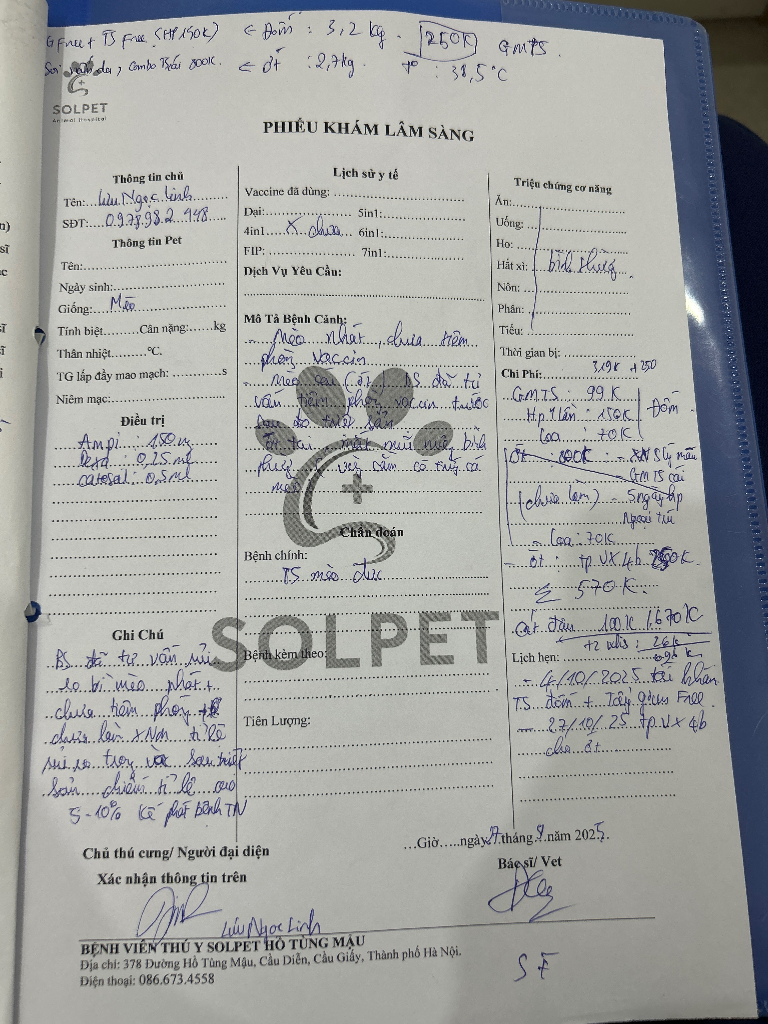 G Free + TS Free (HP 150K) ← Đốm : 3,2 kg. 250K GMTS.
Soi da, combo 800K. ← ớt : 2,7kg. t° : 38,5°C
SOLPET
Animal Hospital
PHIẾU KHÁM LÂM SÀNG
Thông tin chủ
Tên: Lưu Ngọc Linh
SĐT: 0978.982.948
Thông tin Pet
Tên:
Ngày sinh:
Giống: Mèo
Tính biệt Cân nặng: kg
Thân nhiệt °C.
TG lấp đầy mao mạch: s
Niêm mạc:
Điều trị
Ampi : 150
Dexa : 0,25 ml
catosal : 0,5 ml
Ghi Chú
BS đã tư vấn rủi
ro bị mèo nhát +
chưa tiêm phòng +
chưa làm XN tỉ lệ
rủi ro trong sau triệt
sản chiếm tỉ lệ
5-10% kế phát bệnh TN
Lịch sử y tế
Vaccine đã dùng:
Dại: 5in1:
4in1 X chưa 6in1:
FIP: 7in1:
Dịch Vụ Yêu Cầu:
Mô Tả Bệnh Cảnh:
- Mèo nhát, chưa tiêm
phòng vaccin
- Mèo (ớt) BS đã tư
vấn tiêm phòng vaccin trước
sau đó triệt sản
tai, mắt mũi bình
có
mèo
Chẩn đoán
Bệnh chính:
TS mèo đực
SOLPET
Bệnh kèm theo:
Tiên Lượng:
Triệu chứng cơ năng
Ăn:
Uống:
Ho:
Hắt xì: bình thường
Nôn:
Phân:
Tiểu:
Thời gian bị:
319K + 250
Chi Phí:
GMTS : 99K
Hp 1 lần : 150K Đốm
Loa : 70K
Ớt : 800K : - XN Slý máu
GMTS cái
(chưa làm) - 5 ngày hp
Ngoại trú
- Loa : 70K
- Ớt : tp VX 4b 250K
Σ 570K.
Cắt 100K / 670K
+2 : 26K
696K
Lịch hẹn:
- 4/10/2025 tái khám
TS đốm + Tẩy giun Free
- 27/10/25 tp VX 4b
cho ớt
Giờ ngày 27 tháng 9 năm 2025.
Chủ thú cưng/ Người đại diện
Xác nhận thông tin trên
Bác sĩ/ Vet
Lưu Ngọc Linh
BỆNH VIỆN THÚ Y SOLPET HỒ TÙNG MẬU
Địa chỉ: 378 Đường Hồ Tùng Mậu, Cầu Diễn, Cầu Giấy, Thành phố Hà Nội.
Điện thoại: 086.673.4558
SF